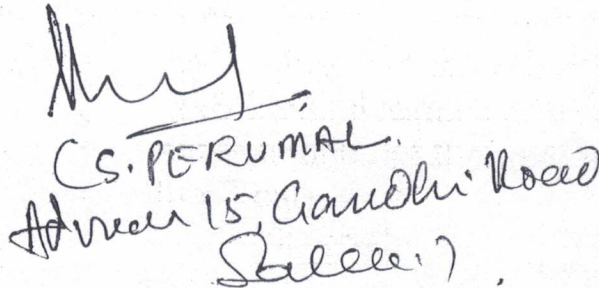 (S. PERUMAL.
Advocate 15, Gandhi Road
Salem. 7.